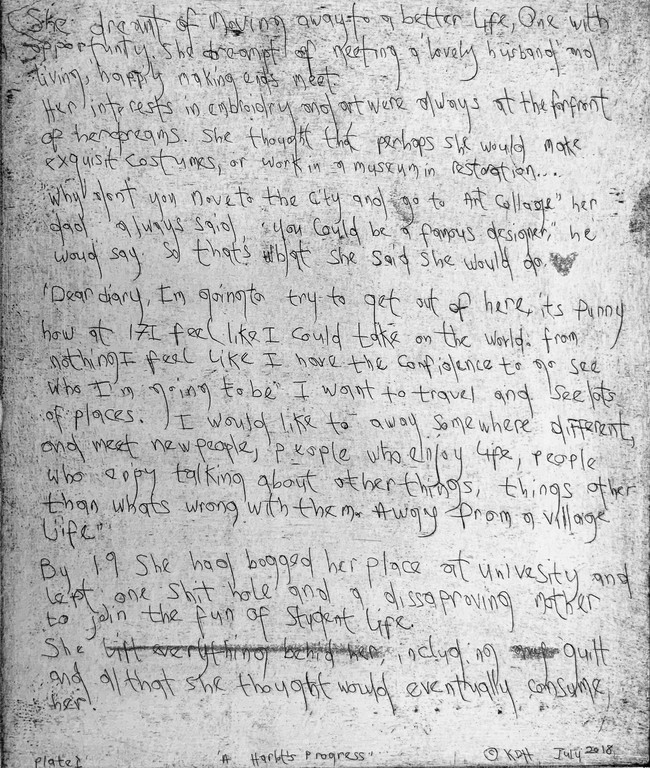 She dreamt of Moving away to a better Life, One with
opportunty. She dreampt of meeting a lovely husband and
living happly making ends meet
Her interests in embroidry and art were always at the forfront
of her dreams. She thought that perhaps she would make
exquisit costumes, or work in a museum in restoration....
"Why dont you move to the City and go to Art Collage" her
dad always said "you could be a famous designer," he
woud say. So that's what she said she would do.
"Dear diary, Im going to try to get out of here, its funny
how at 17 I feel like I could take on the world. from
nothing I feel like I have the confidence to go see
who I'm going to be" I want to travel and see lots
of places. I would like to away somewhere different,
and meet new people, people who enjoy life, people
who enjoy talking about other things, things other
than whats wrong with them. Away from a village
Life".
By 19 She had bagged her place at univesity and
left one shit hole and a dissaproving mother
to join the fun of student life.
She left everything behind her, including guilt
and all that she thought would eventually consume
her.
Plate 1 'A Harlot's Progress' © KDH July 2018